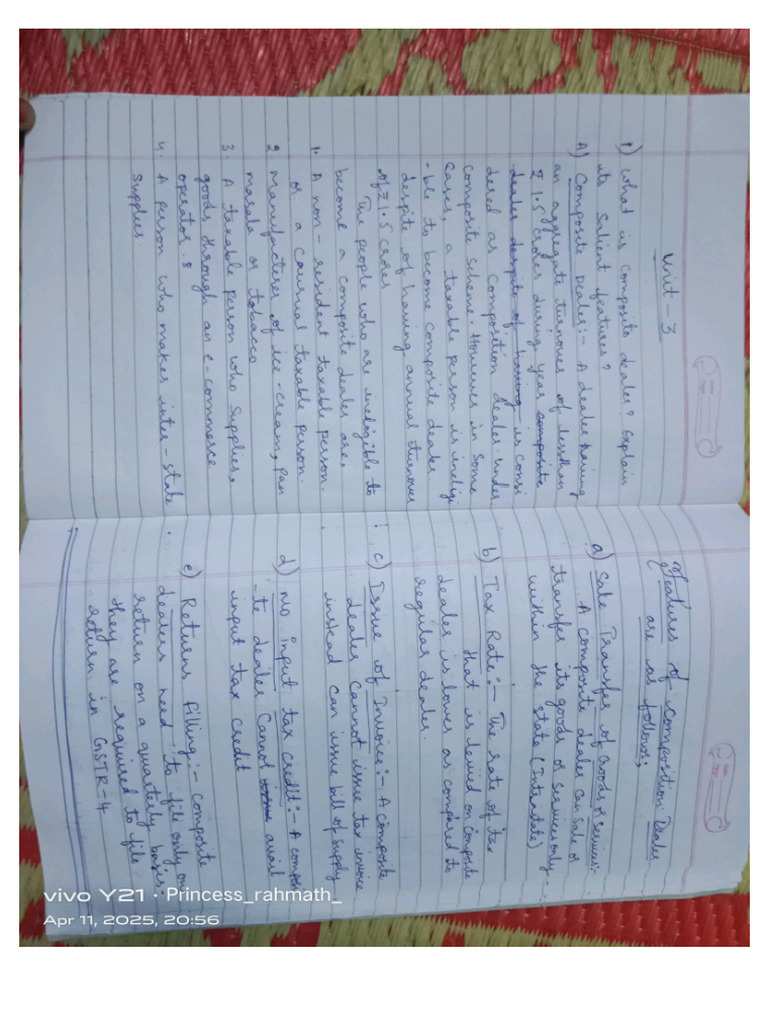 Unit - 3
1) What is composite dealer? Explain
its Salient features?
A) Composite Dealer:- A dealer having
an aggregate turnover of lessthan
₹ 1.5 crores during year composite
dealer despite of having is consi
dered as composition dealer under
composite scheme. However in some
cases, a taxable person is ineligi
-ble to become composite dealer
despite of having annual turnover
of ₹ 1.5 crores
The people who are inedigible to
become a composite dealer are,
1. A non - resident taxable person
or a causual taxable person.
2 Manufacturer of ice-cream, pan
masala or tobacco
3. A taxable person who supplies,
goods through an e-commerce
operator. &
4. A person who makes inter - state
supplies
Features of composition Dealer
are as follows;
a) Sale Transfer of Goods or services:-
A composite dealer can sale or
transfer its goods or services only
within the state (Intrastate)
b) Tax Rate:- The rate of tax
that is levied on composite
dealer is lower as compared to
regular dealer.
c) Issue of Invoice:- A composite
dealer cannot issue tax invoice
instead can issue bill of supply
d) No input tax credit:- A compos
-te dealer Cannot issue avail
input tax credit
e) Returns filling:- Composite
dealers need to file only on
return on a quarterly basis,
they are required to file
return in GSTR-4
vivo Y21 · Princess_rahmath_
Apr 11, 2025, 20:56